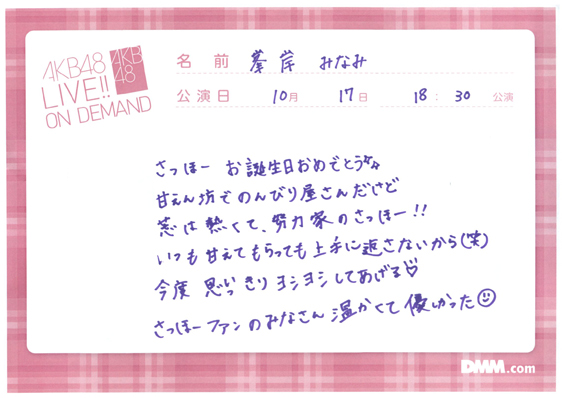 AKB48
LIVE!!
ON DEMAND
AKB
48
名前 峯岸 みなみ
公演日 10月 17日 18:30 公演
さっほー お誕生日おめでとう
甘えん坊でのんびり屋さんだけど
芯は熱くて、努力家のさっほー!!
いつも甘えてもらっても上手に返さないから(笑)
今度 思いっきり ヨシヨシしてあげる
さっほーファンのみなさん 温かくて優しかった
DMM.com